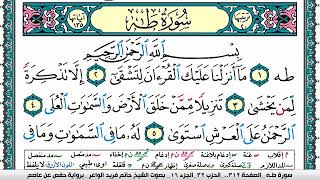 سُورَةُ طه
بِسْمِ اللَّهِ الرَّحْمَٰنِ الرَّحِيمِ
طه ١ مَا أَنزَلْنَا عَلَيْكَ الْقُرْءَانَ لِتَشْقَىٰ ٢ إِلَّا تَذْكِرَةً
لِّمَن يَخْشَىٰ ٣ تَنزِيلًا مِّمَّنْ خَلَقَ الْأَرْضَ وَالسَّمَٰوَٰتِ الْعُلَى ٤
الرَّحْمَٰنُ عَلَى الْعَرْشِ اسْتَوَىٰ ٥ لَهُ مَا فِي السَّمَٰوَٰتِ وَمَا فِي
سورة طـه - الصفحة ٣١٢ - الحزب ٣٢ - الجزء ١٦ - بصوت الشيخ حاتم فريد الواعر - برواية حفص عن عاصم